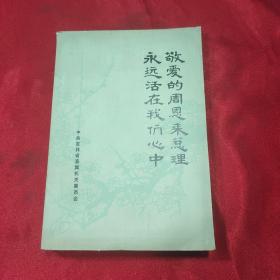 敬爱的周恩来总理
永远活在我们心中
中共吉林省委机关党委会